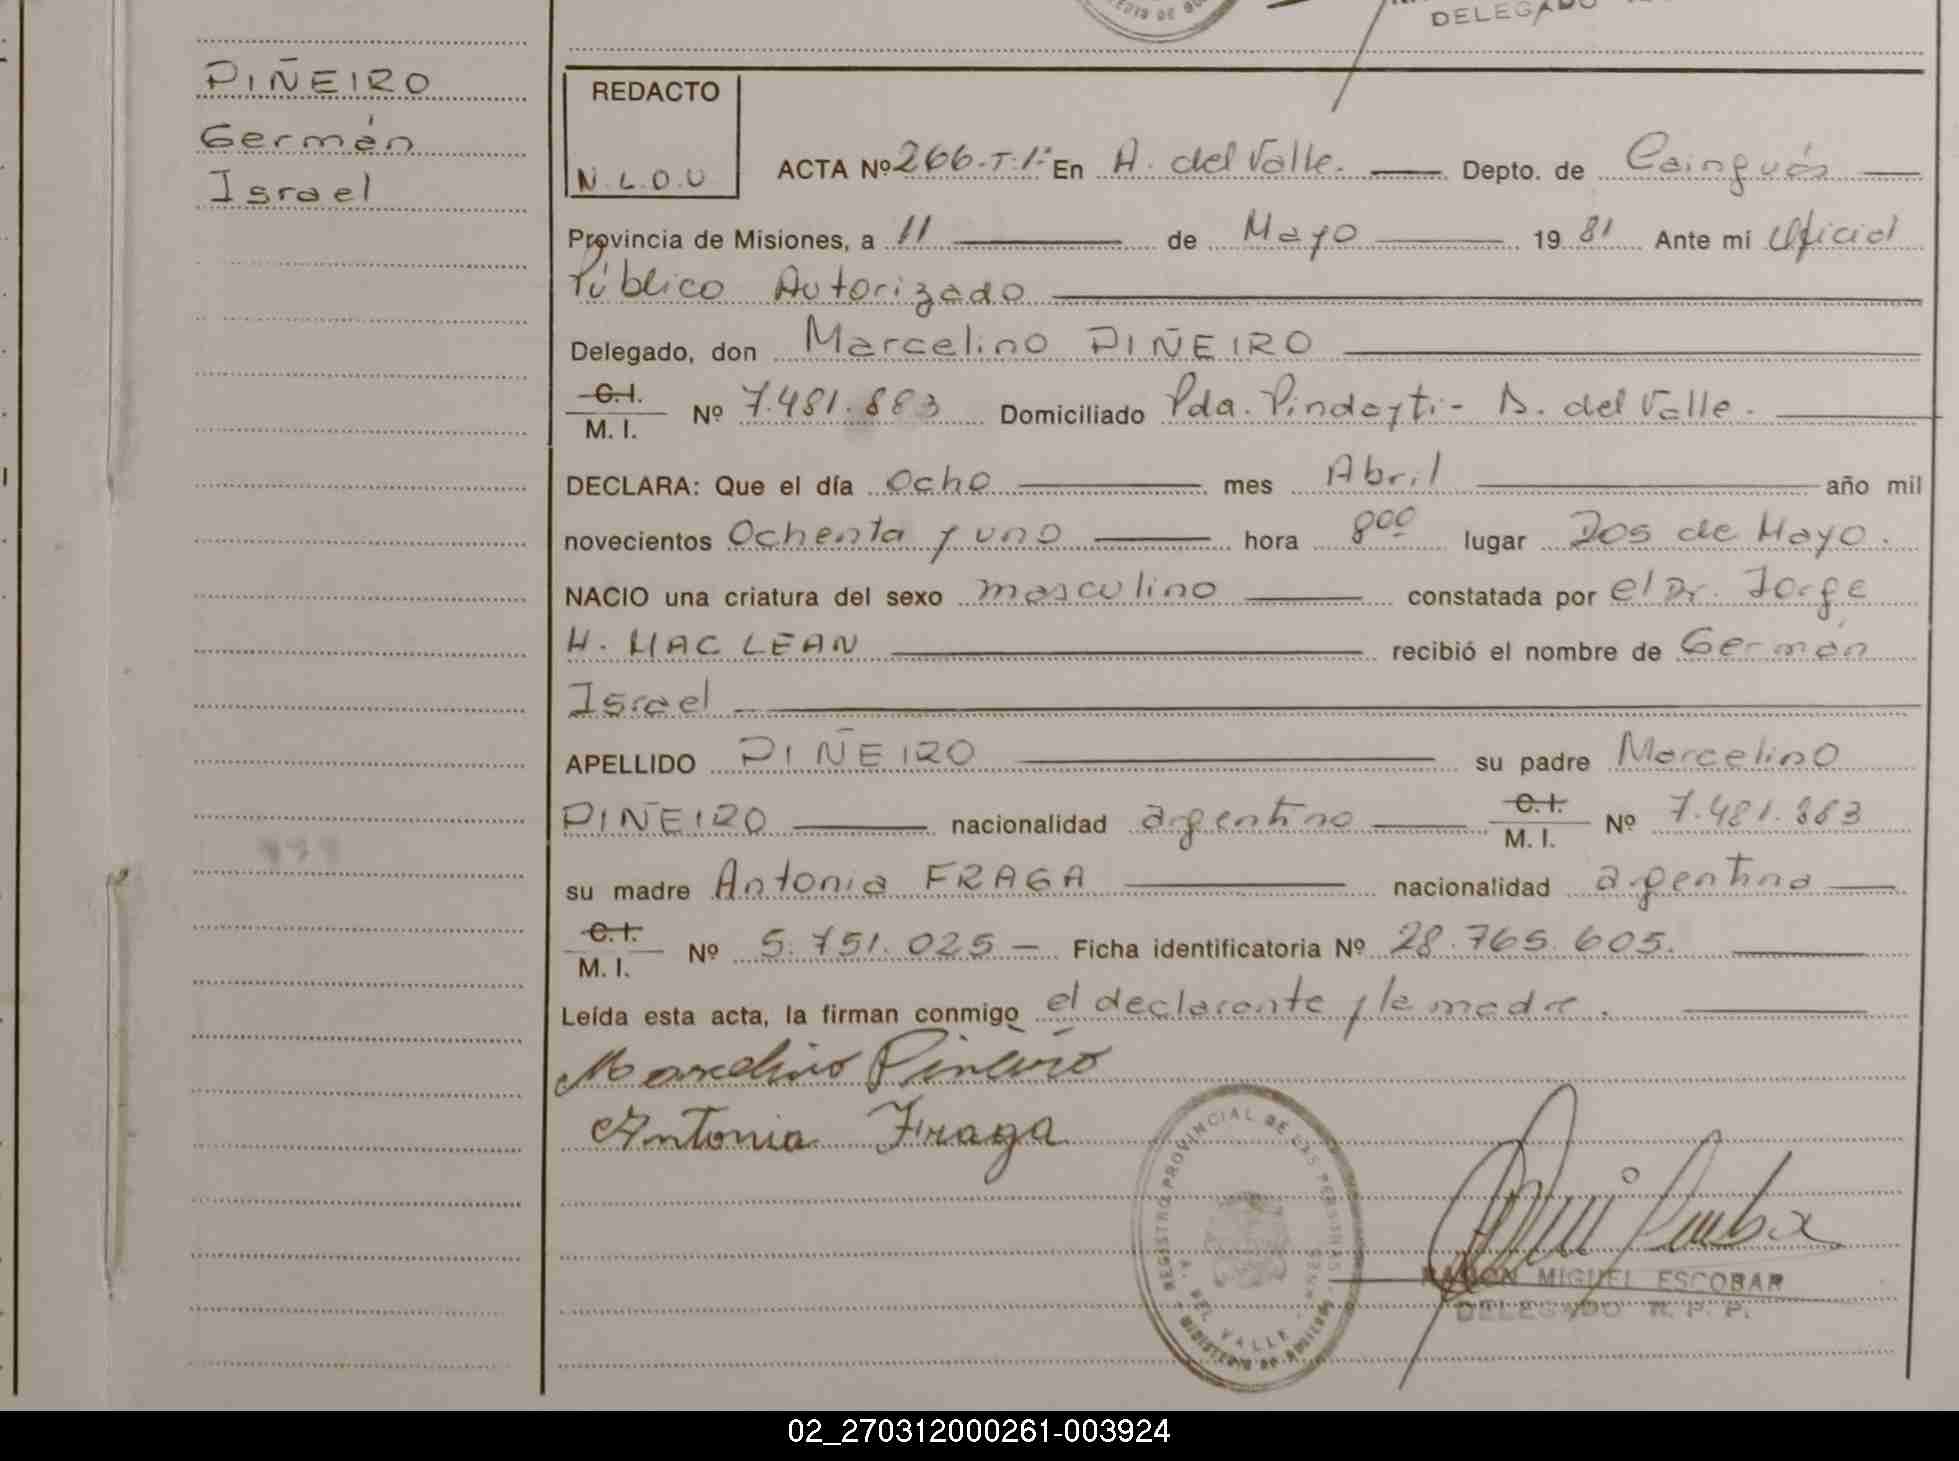 DELEGADO
PIÑEIRO
Germán
Israel
REDACTO
N.L.D.U
ACTA Nº 266-T.1º En A. del Valle. Depto. de Cainguás
Provincia de Misiones, a 11 de Mayo 19 81 Ante mi Oficial
Público Autorizado
Delegado, don Marcelino PIÑEIRO
C.I.
M. I. Nº 7.481.883 Domiciliado Pda. Pindayti- A. del Valle.
DECLARA: Que el día Ocho mes Abril año mil
novecientos Ochenta y uno hora 8 00 lugar Dos de Mayo.
NACIO una criatura del sexo masculino constatada por el Dr. Jorge
H. MAC LEAN recibió el nombre de Germán
Israel
APELLIDO PIÑEIRO su padre Marcelino
PIÑEIRO nacionalidad argentino C.I. M. I. Nº 7.481.883
su madre Antonia FRAGA nacionalidad argentina
C.I.
M. I. Nº 5.751.025 Ficha identificatoria Nº 28.765.605.
Leída esta acta, la firman conmigo el declarante y la madre.
Marcelino Piñeiro
Antonia Fraga
REGISTRO PROVINCIAL DE LAS PERSONAS
A. DEL VALLE
RAMON MIGUEL ESCOBAR
DELEGADO R. P. P.
02_270312000261-003924